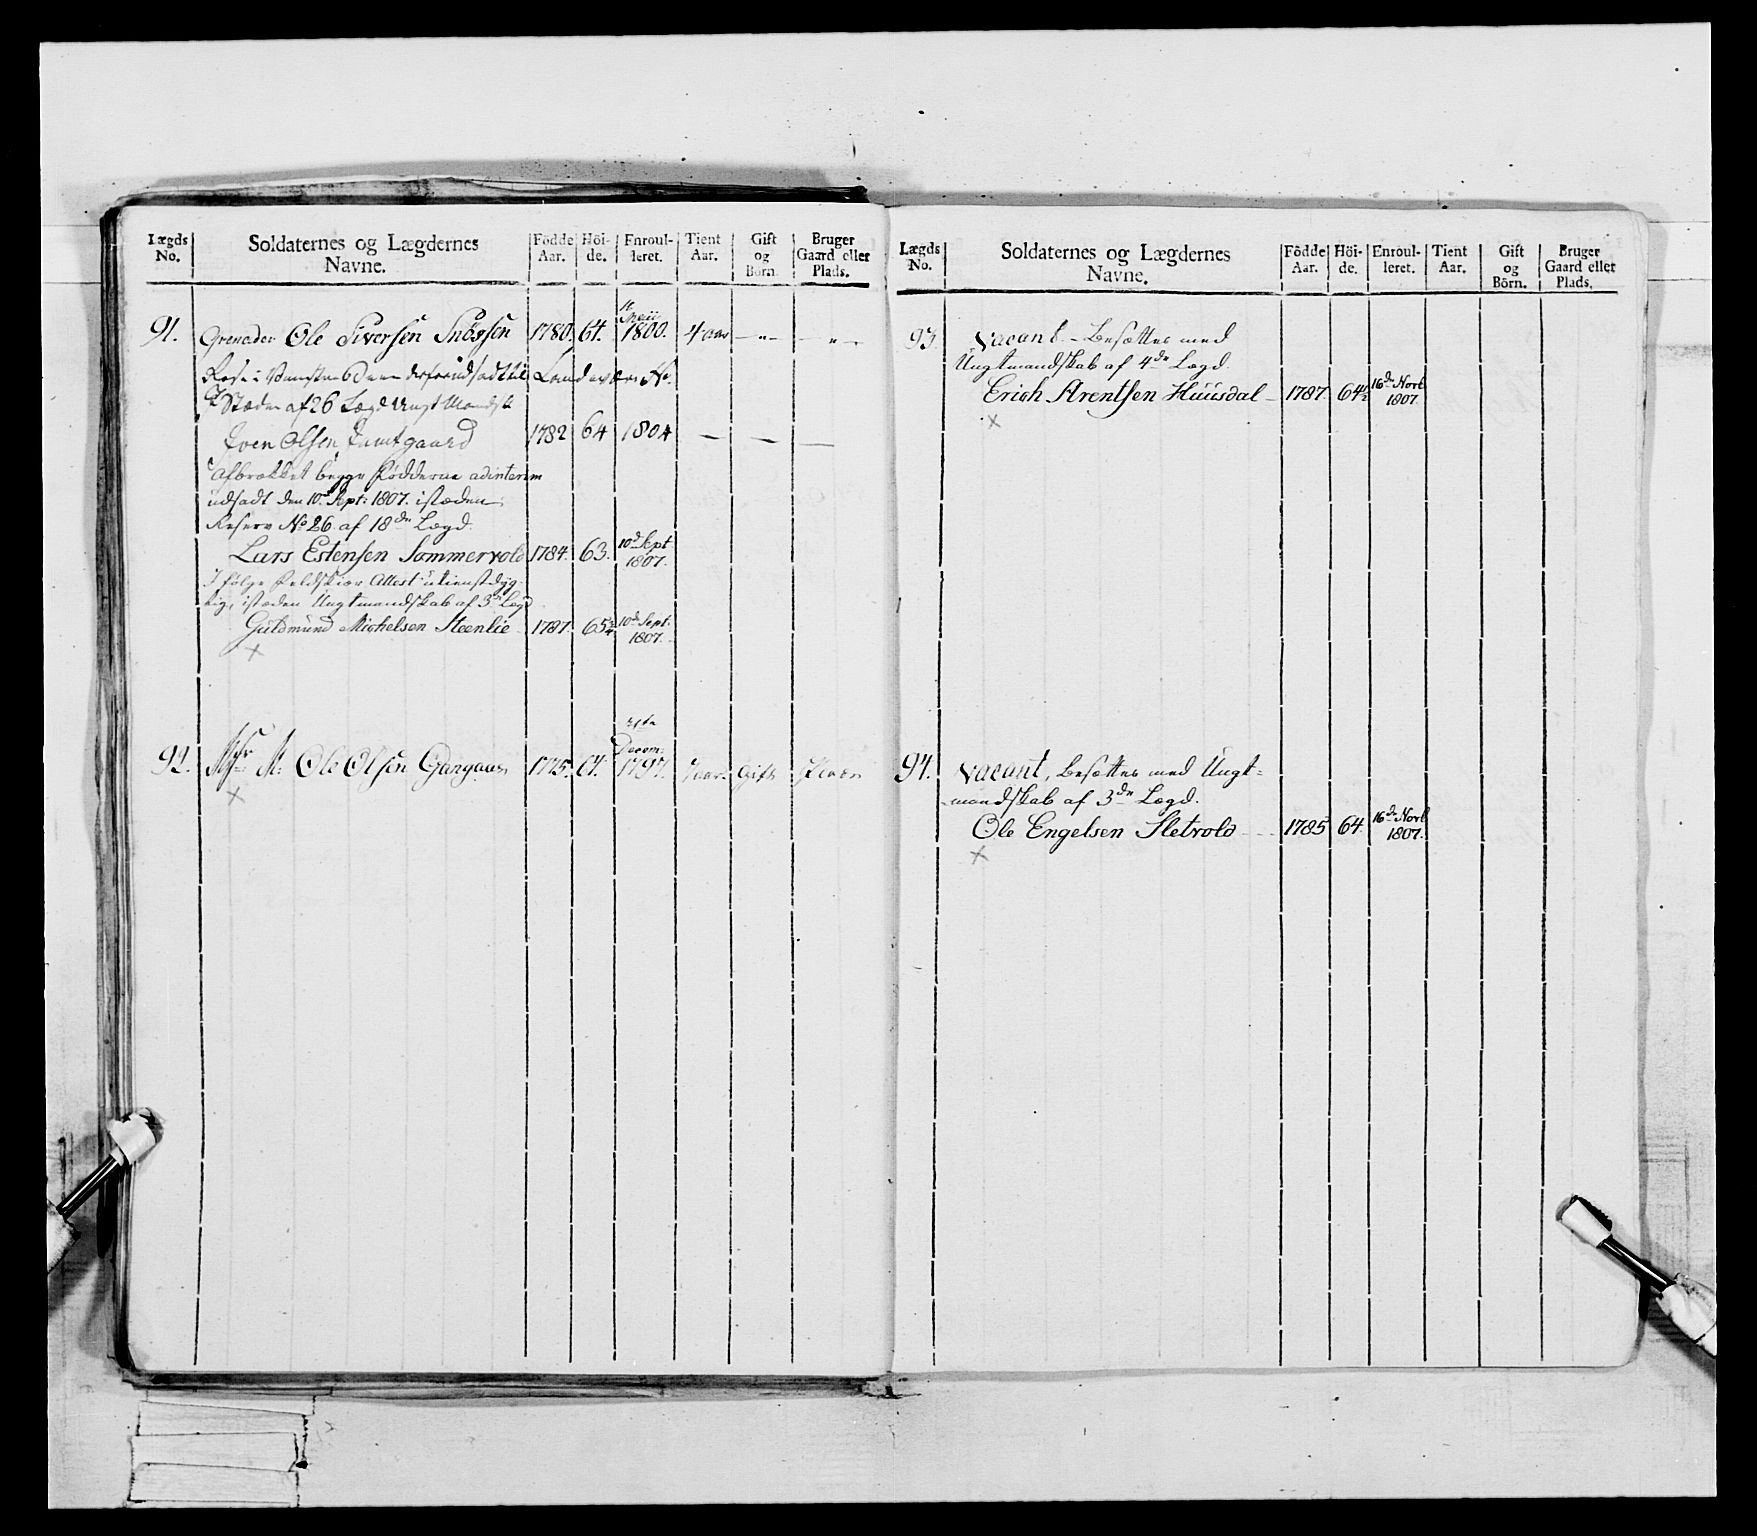 Lægds No. | Soldaternes og Lægdernes Navne. | Födde Aar. | Höi- de. | Enroul- leret. | Tient Aar. | Gift og Börn. | Bruger Gaard eller Plads.
91. Grenader Ole Siversen Snögsen 1780. 64. Maii 1800. 4 aar — „ — — „ —
i Venstre derfor udsadt til Land
Steden af 26 Lægd Ungt Mandsk
Iven Olsen Jamtgaard 1782 64 1804 — — —
Afbrækket begge Födderne adinterim
udsadt den 10d Sept: 1807. istæden
Reserv No 26. af 18de Lægd.
Lars Estensen Sommervold 1784. 63. 10d Sept 1807.
I fölge Feldskiær Attest utienstdyg-
tig, istæden Ungtmandskab af 3de Lægd
Guldmund Michelsen Steenlie 1787. 65¾ 10de Sept: 1807.
×
92. Ole Olsen Gangaas 1775. 64. Decem: 1797. aar. Gift
×
Lægds No. | Soldaternes og Lægdernes Navne. | Födde Aar. | Höi- de. | Enroul- leret. | Tient Aar. | Gift og Börn. | Bruger Gaard eller Plads.
93 Vacant. - Besættes med
Ungtmandskab af 4de Lægd.
Erich Arentsen Huusdal - 1787 64½ 16de Novb 1807.
×
94. Vacant, Besættes med Ungt=
-mandskab af 3de Lægd.
Ole Engelsen Sletvold - - 1785 64. 16de Novb 1807.
×